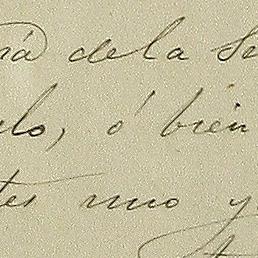 rá de la Se
lo, ó bien
tes uno y